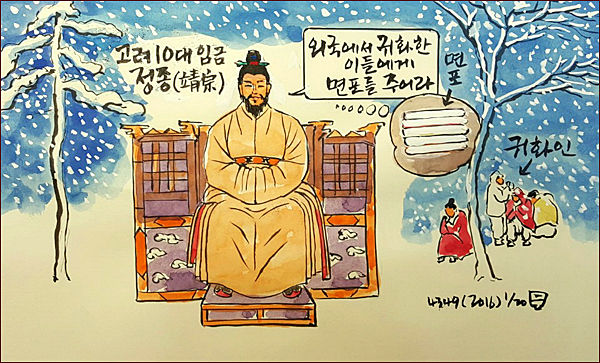 고려 10대 임금
정종(靖宗)
외국에서 귀화한
이들에게
면포를 주어라
면포
귀화인
4349(2016) 1/20